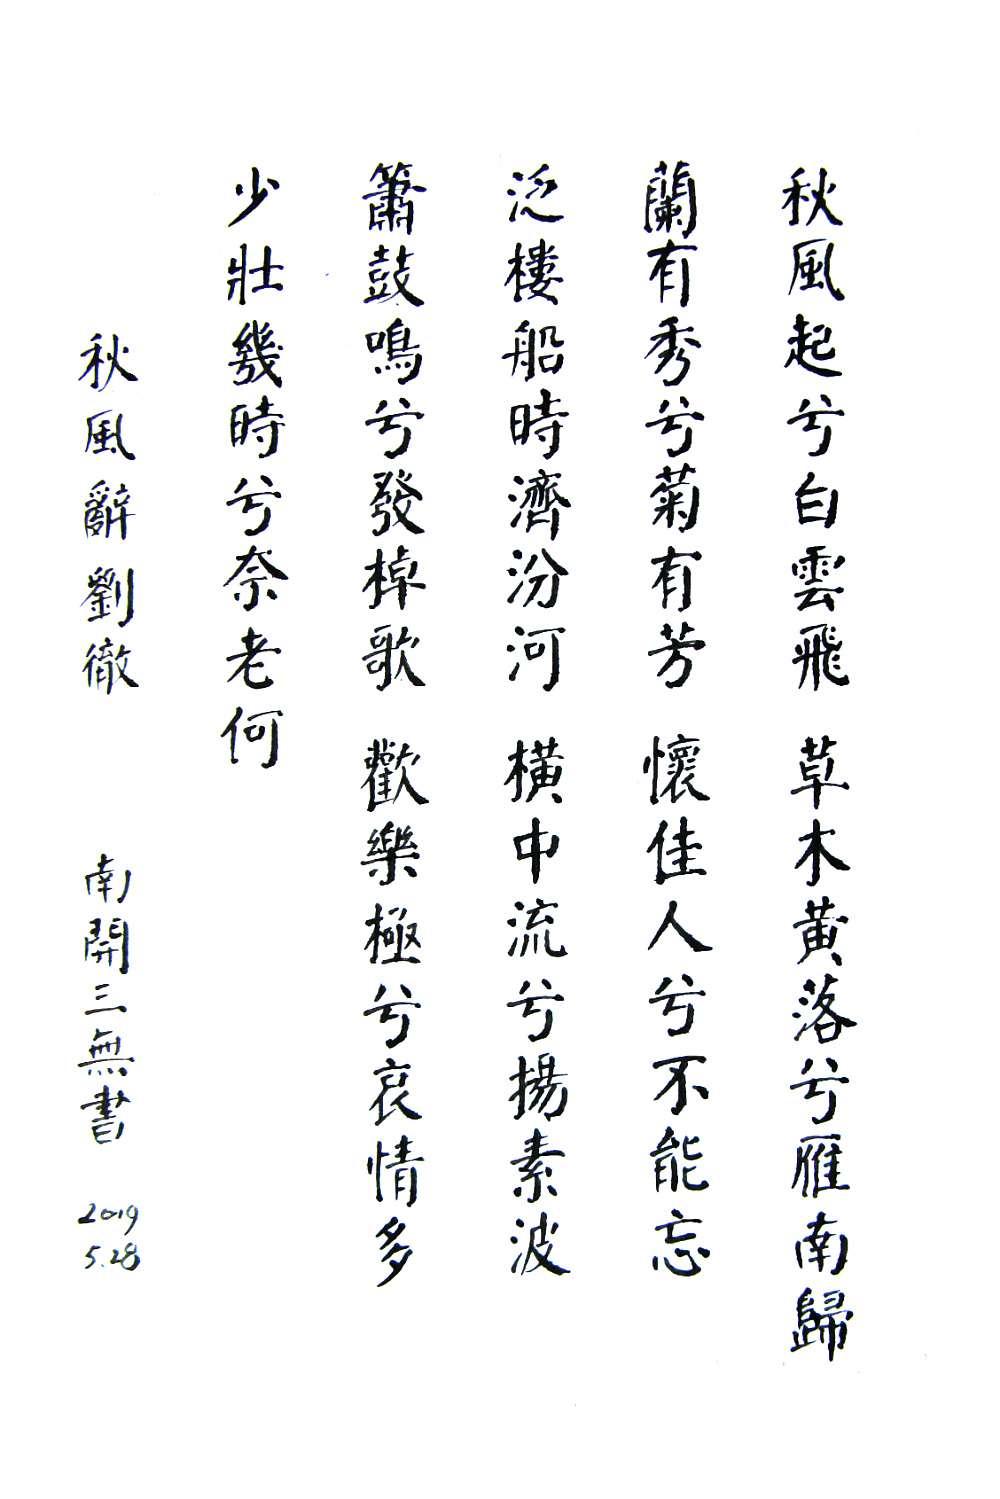 秋風起兮白雲飛 草木黄落兮雁南歸
蘭有秀兮菊有芳 懷佳人兮不能忘
泛樓船時濟汾河 橫中流兮揚素波
簫鼓鳴兮發棹歌 歡樂極兮哀情多
少壯幾時兮奈老何
秋風辭劉徹 南開三無書 2019 5.28